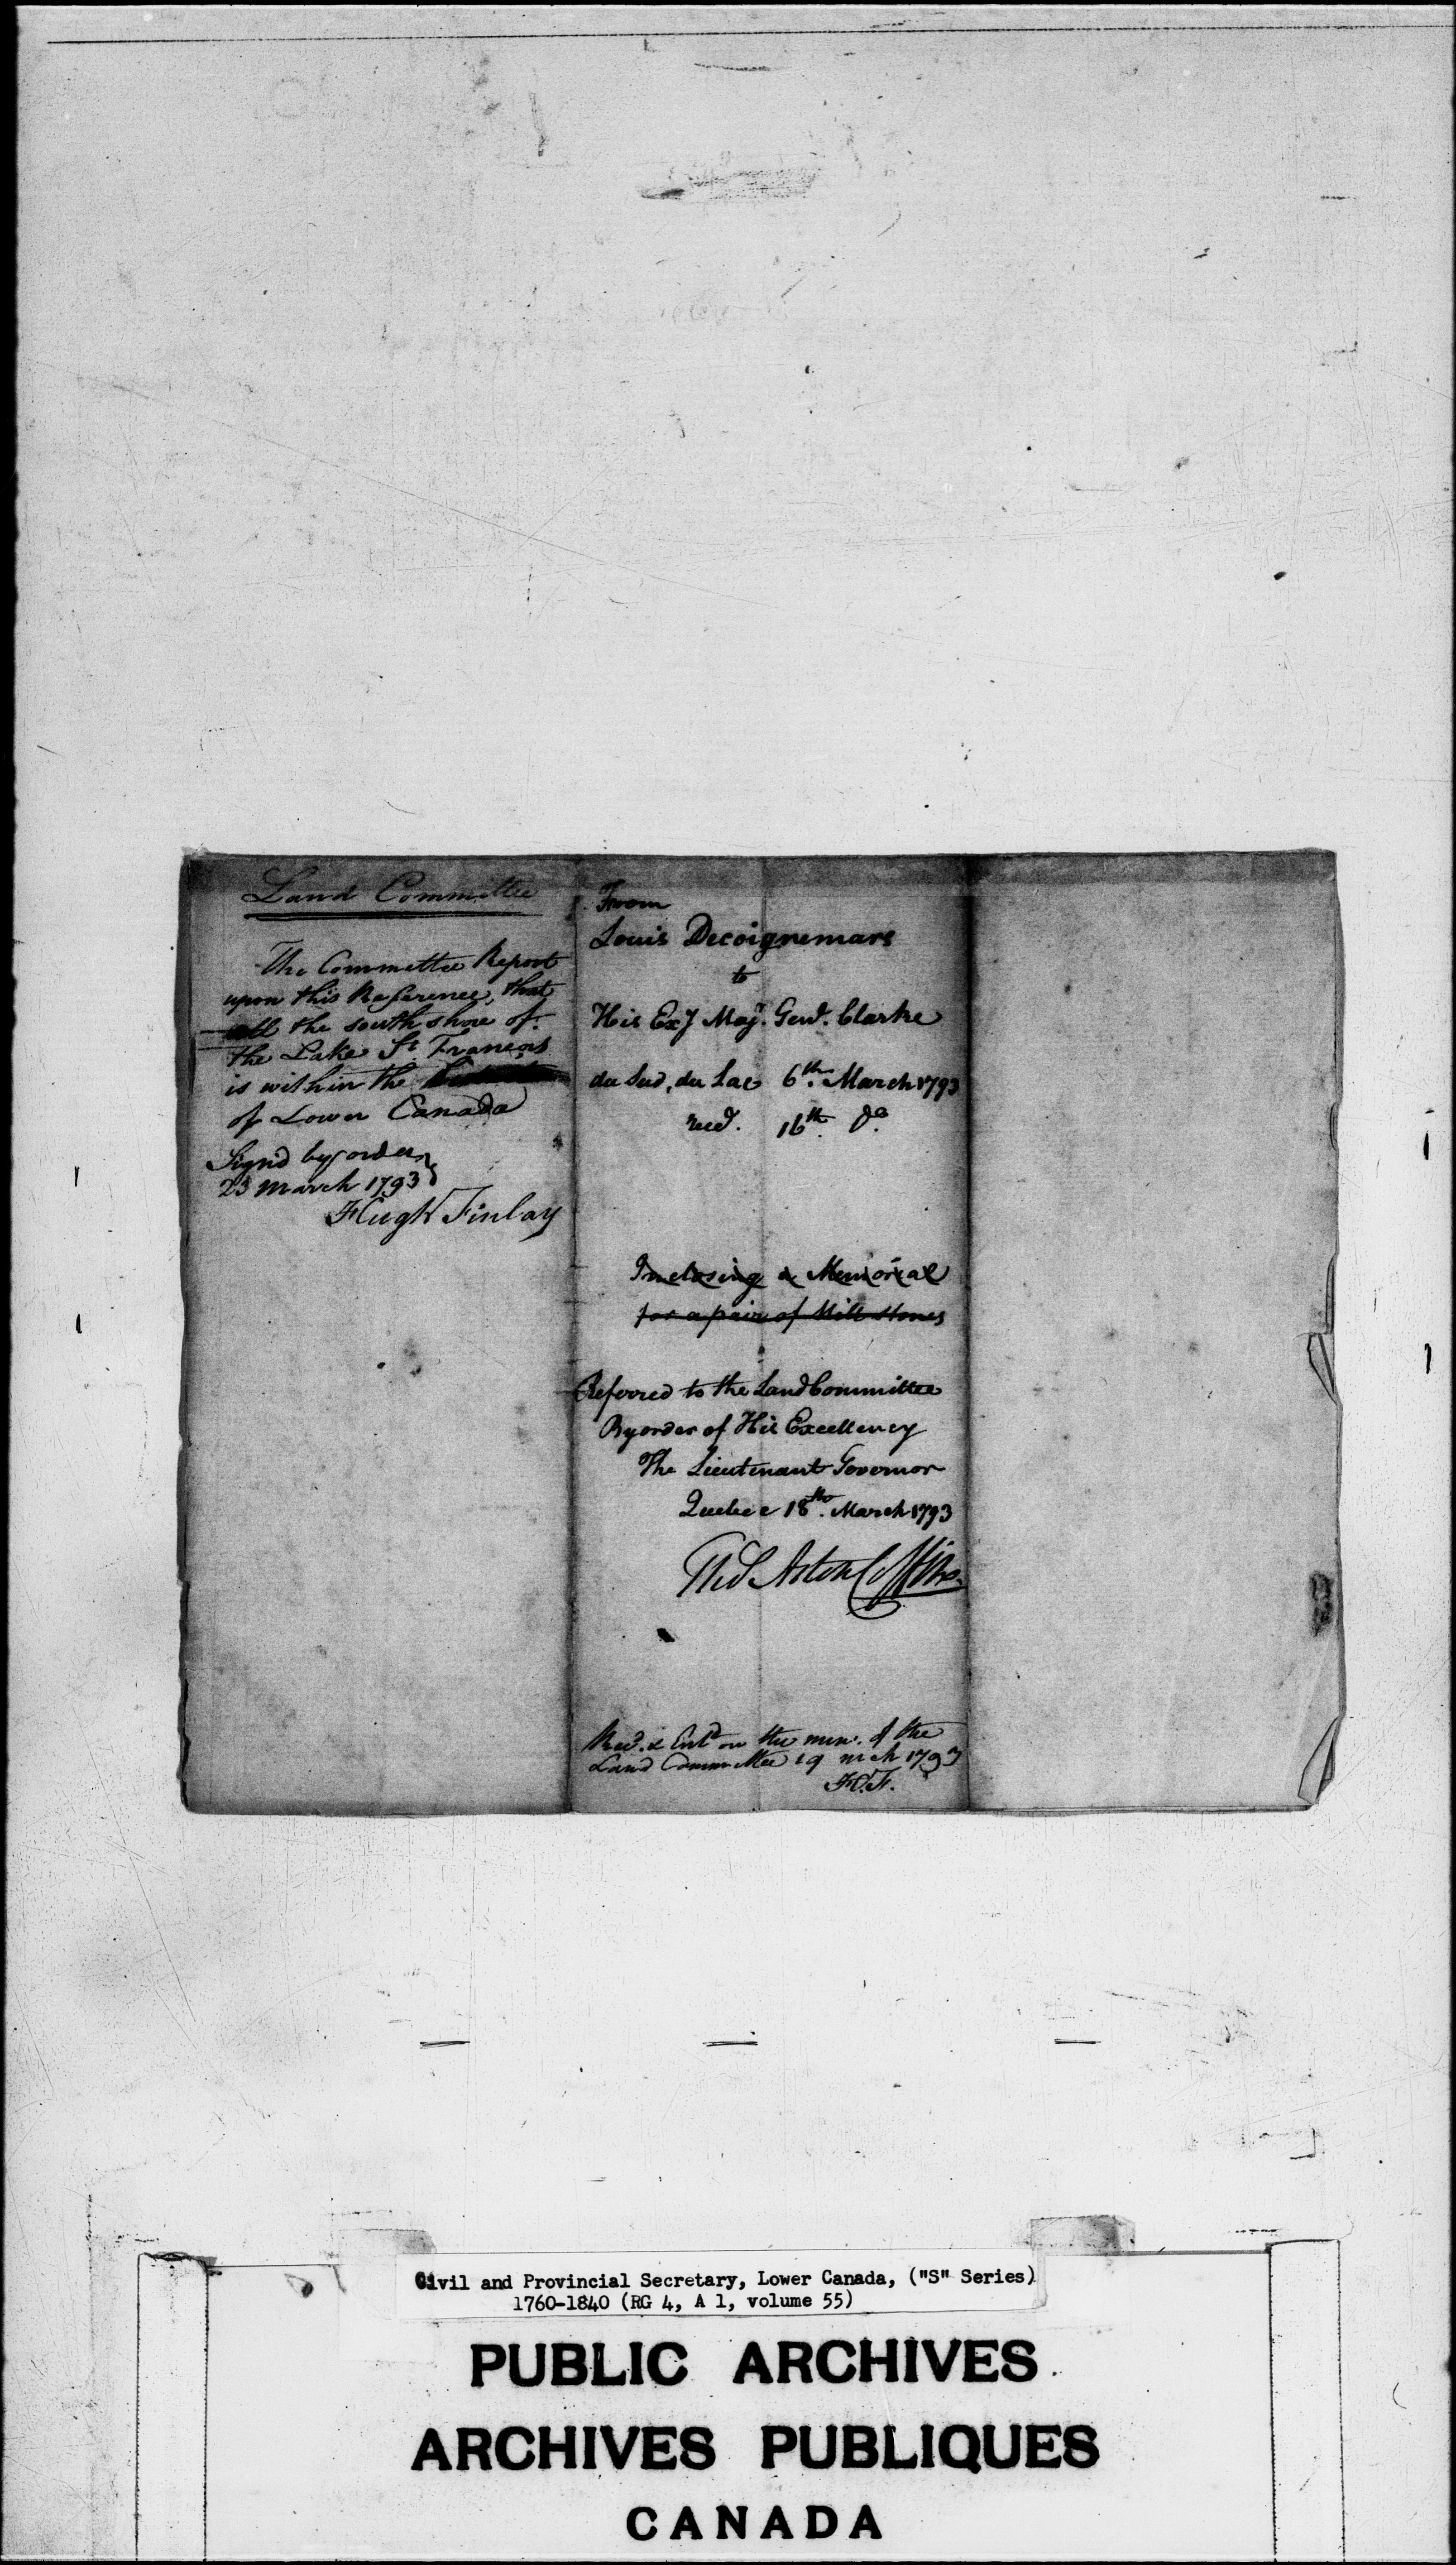 Land Committee
The Committee Report
upon this Reference, that
all the south shore of
the Lake St. François
is within the
of Lower Canada
Signd by order
23 March 1793
Hugh Finlay
From
Louis Decoignemars
to
His Exy Majr. Genl. Clarke
du Sud, du Lac 6th. March 1793
recd. 16th. Do.
Inclosing a Memorial
for a pair of Mill stones
Referred to the Land Committee
By order of His Excellency
The Lieutenant Governor
Quebec 18th. March 1793
Thos Aston Coffin
Recd. & Entd on the min. of the
Land Committee 19 mch 1793
H.F.
Civil and Provincial Secretary, Lower Canada, ("S" Series)
1760-1840 (RG 4, A 1, volume 55)
PUBLIC ARCHIVES
ARCHIVES PUBLIQUES
CANADA